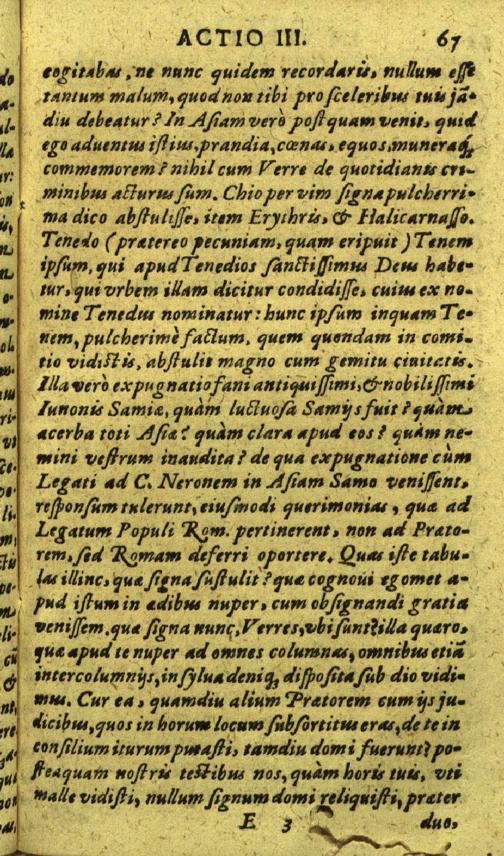 ACTIO III. 67
cogitabas, ne nunc quidem recordaris, nullum esse
tantum malum, quod non tibi pro sceleribus tuis jã-
diu debeatur? In Asiam verò post quam venit, quid
ego aduentus istius, prandia, cœnas, equos, muneraq́;
commemorem? nihil cum Verre de quotidianis cri-
minibus acturus sum. Chio per vim signa pulcherri-
ma dico abstulisse, item Erythris, & Halicarnasso.
Tenedo (prætereo pecuniam, quam eripuit) Tenem
ipsum, qui apud Tenedios sanctissimus Deus habe-
tur, qui vrbem illam dicitur condidisse, cuius ex no-
mine Tenedus nominatur: hunc ipsum inquam Te-
nem, pulcherimè factum, quem quendam in comi-
tio vidistis, abstulit magno cum gemitu ciuitatis.
Illa verò expugnatio fani antiquissimi, & nobilissimi
Iunonis Samiæ, quàm luctuosa Samijs fuit? quàm
acerba toti Asiæ? quàm clara apud eos? quàm ne-
mini vestrum inaudita? de qua expugnatione cùm
Legati ad C. Neronem in Asiam Samo venissent,
responsum tulerunt, eiusmodi querimonias, quæ ad
Legatum Populi Rom. pertinerent, non ad Præto-
rem, sed Romam deferri oportere. Quas iste tabu-
las illinc, quæ signa sustulit? quæ cognoui egomet a-
pud istum in ædibus nuper, cum obsignandi gratia
venissem. quæ signa nunc, Verres, vbi sunt? illa quæro,
quæ apud te nuper ad omnes columnas, omnibus etiã
intercolumnijs, in sylua deniq; disposita sub dio vidi-
mus. Cur ea, quamdiu alium Prætorem cum ijs ju-
dicibus, quos in horum locum subsortitus eras, de te in
consilium iturum putasti, tamdiu domi fuerunt? po-
steaquam nostris testibus nos, quàm horis tuis, vti
malle vidisti, nullum signum domi reliquisti, præter
E 3 duo,